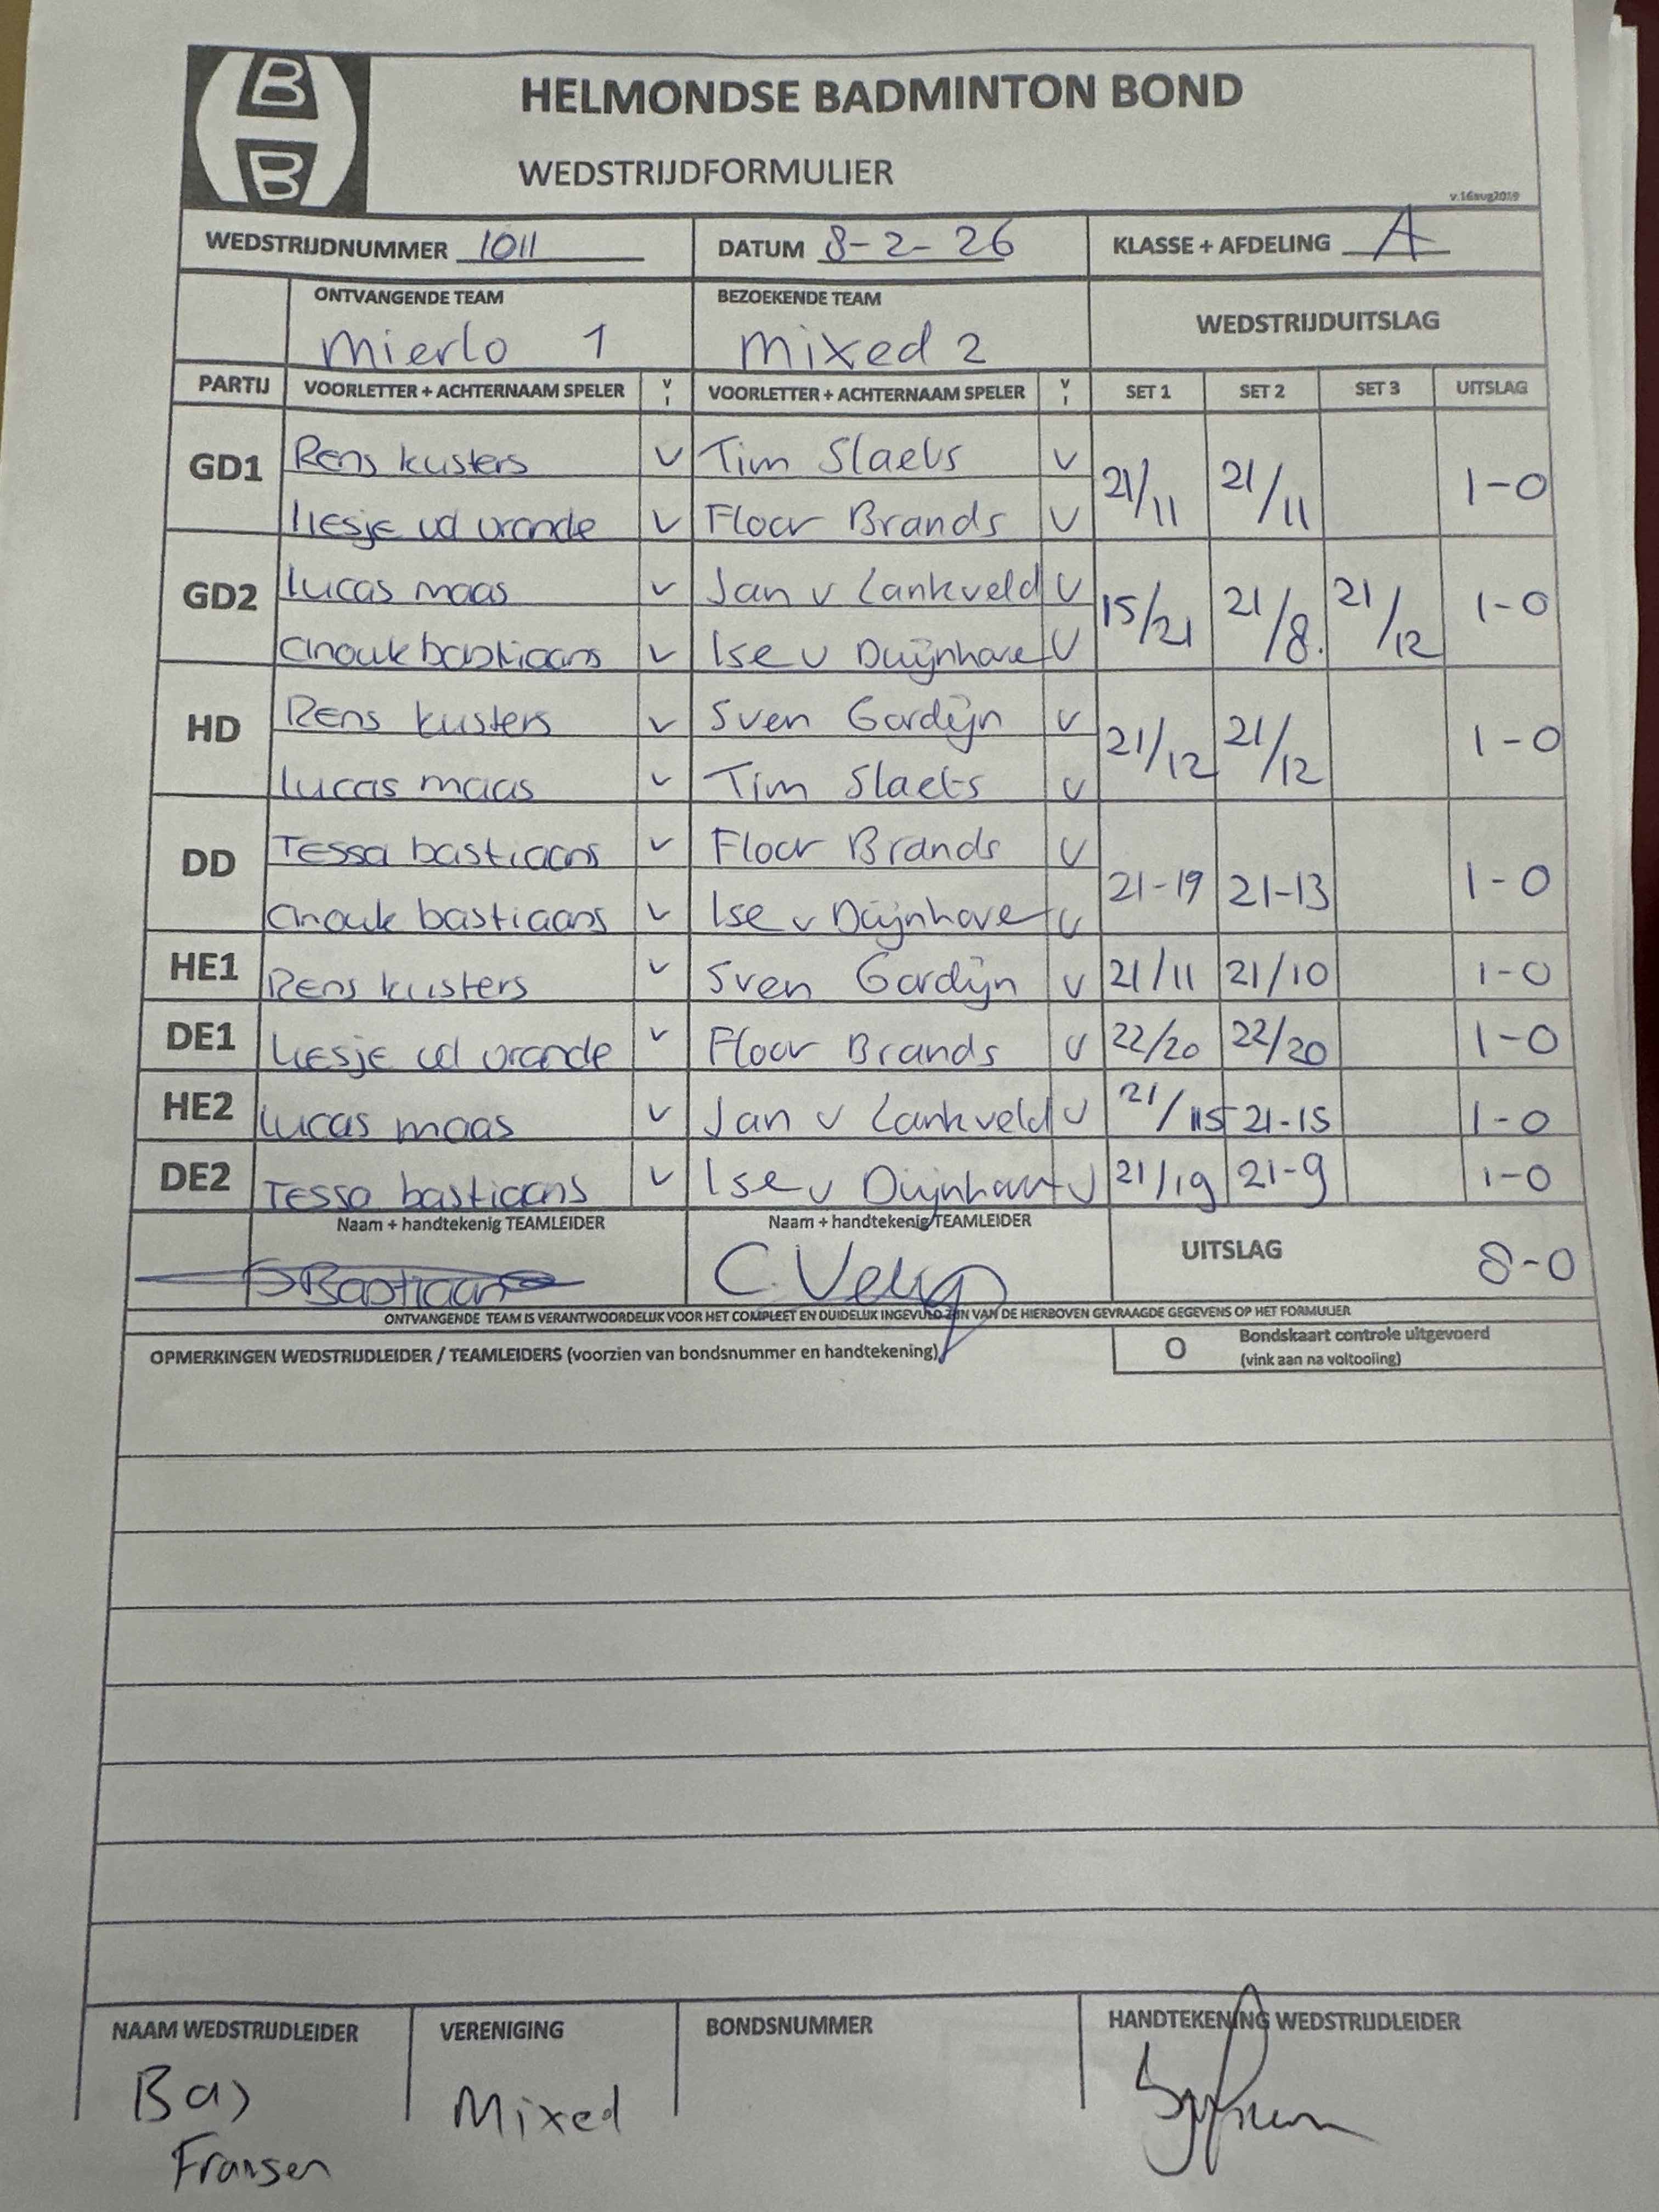 B
B
HELMONDSE BADMINTON BOND
WEDSTRIJDFORMULIER
v.16aug2019
WEDSTRIJDNUMMER 1011 DATUM 8-2-26 KLASSE + AFDELING A
ONTVANGENDE TEAM BEZOEKENDE TEAM WEDSTRIJDUITSLAG
Mierlo 1 Mixed 2
PARTIJ VOORLETTER + ACHTERNAAM SPELER V VOORLETTER + ACHTERNAAM SPELER V SET 1 SET 2 SET 3 UITSLAG
GD1 Rens kusters V Tim Slaets V 21/11 21/11 1-0
Liesje vd vrande V Floor Brands V
GD2 Lucas maas V Jan v Lankveld V 15/21 21/8. 21/12 1-0
Anouk bastiaans V Ise v Duijnhoven V
HD Rens kusters V Sven Gordijn V 21/12 21/12 1-0
Lucas maas V Tim Slaets V
DD Tessa bastiaans V Floor Brands V 21-19 21-13 1-0
Anouk bastiaans V Ise v Duijnhoven V
HE1 Rens kusters V Sven Gordijn V 21/11 21/10 1-0
DE1 Liesje vd vrande V Floor Brands V 22/20 22/20 1-0
HE2 Lucas maas V Jan v Lankveld V 21/15 21-15 1-0
DE2 Tessa bastiaans V Ise v Duijnhoven V 21/19 21-9 1-0
Naam + handtekenig TEAMLEIDER Naam + handtekenig TEAMLEIDER UITSLAG 8-0
Bastiaans C.
ONTVANGENDE TEAM IS VERANTWOORDELIJK VOOR HET COMPLEET EN DUIDELIJK INGEVULD ZIJN VAN DE HIERBOVEN GEVRAAGDE GEGEVENS OP HET FORMULIER
OPMERKINGEN WEDSTRIJDLEIDER / TEAMLEIDERS (voorzien van bondsnummer en handtekening) O Bondskaart controle uitgevoerd
(vink aan na voltooiing)
NAAM WEDSTRIJDLEIDER VERENIGING BONDSNUMMER HANDTEKENING WEDSTRIJDLEIDER
Bas Mixed
Fransen